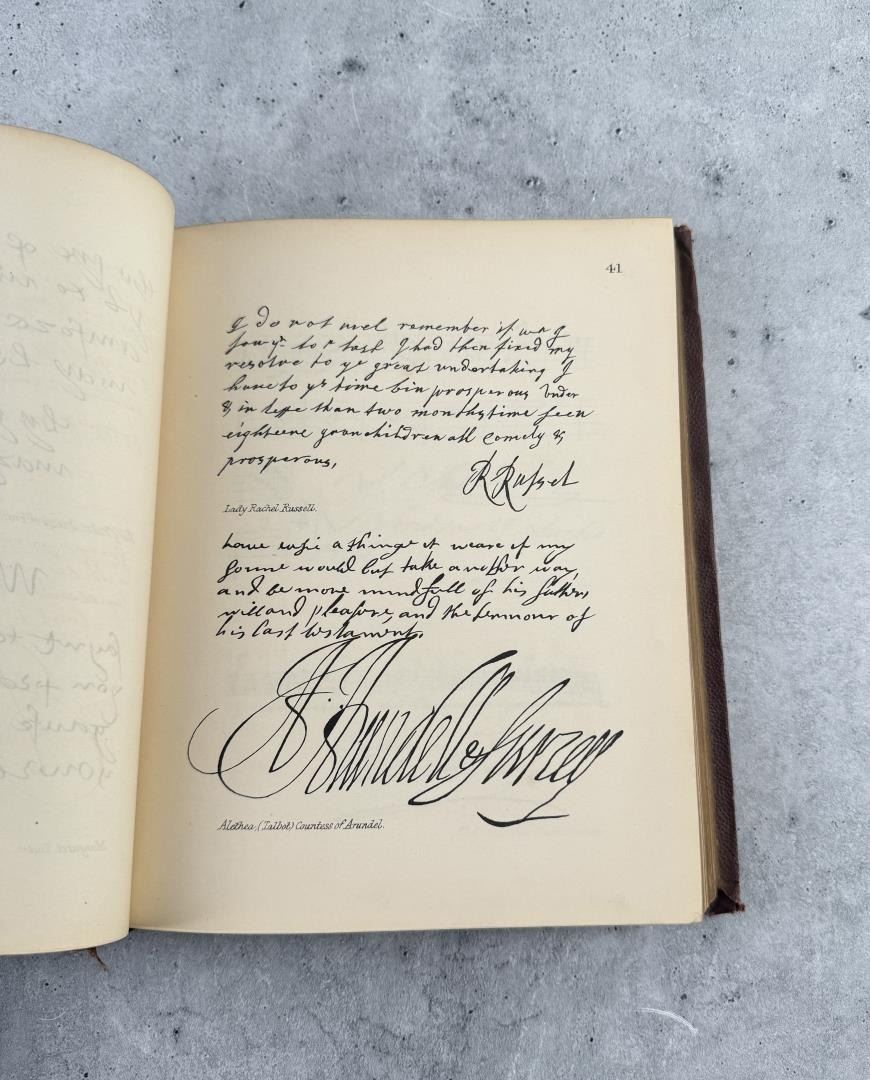 41
I do not well remember if wn I
saw yu to r last I had then fixed my
resolve to ye great undertaking I
have to ys time bin prosperous under
& in lesse than two months time seen
eighteene granchildren all comely &
prosperous,
R Russel
Lady Rachel Russell.
have a thinge it weare if my
sonne would but take another way,
and be more mindfull of his fathers
will and pleasure, and the honnour of
his last testament.
A: Arundell & Surrey
Alethea, (Talbot) Countess of Arundel.